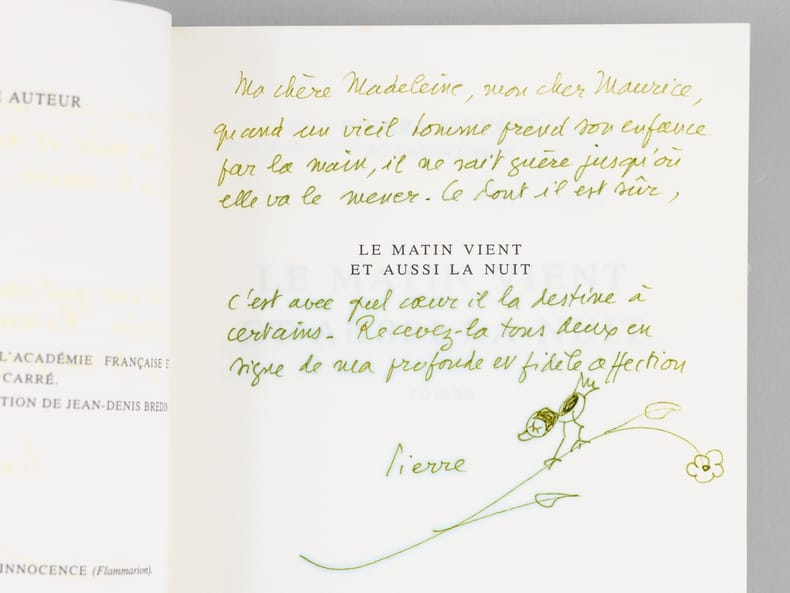 AUTEUR
L'ACADÉMIE FRANÇAISE E
CARRÉ.
TION DE JEAN-DENIS BREDIN
INNOCENCE (Flammarion).
Ma chère Madeleine, mon cher Maurice,
quand un vieil homme prend son enfance
par la main, il ne sait guère jusqu'où
elle va le mener. Ce dont il est sûr,
LE MATIN VIENT
ET AUSSI LA NUIT
c'est avec quel cœur il la destine à
certains. Recevez-la tous deux en
signe de ma profonde et fidèle affection
Pierre
LE MATIN VIENT
ET AUSSI LA NUIT
roman